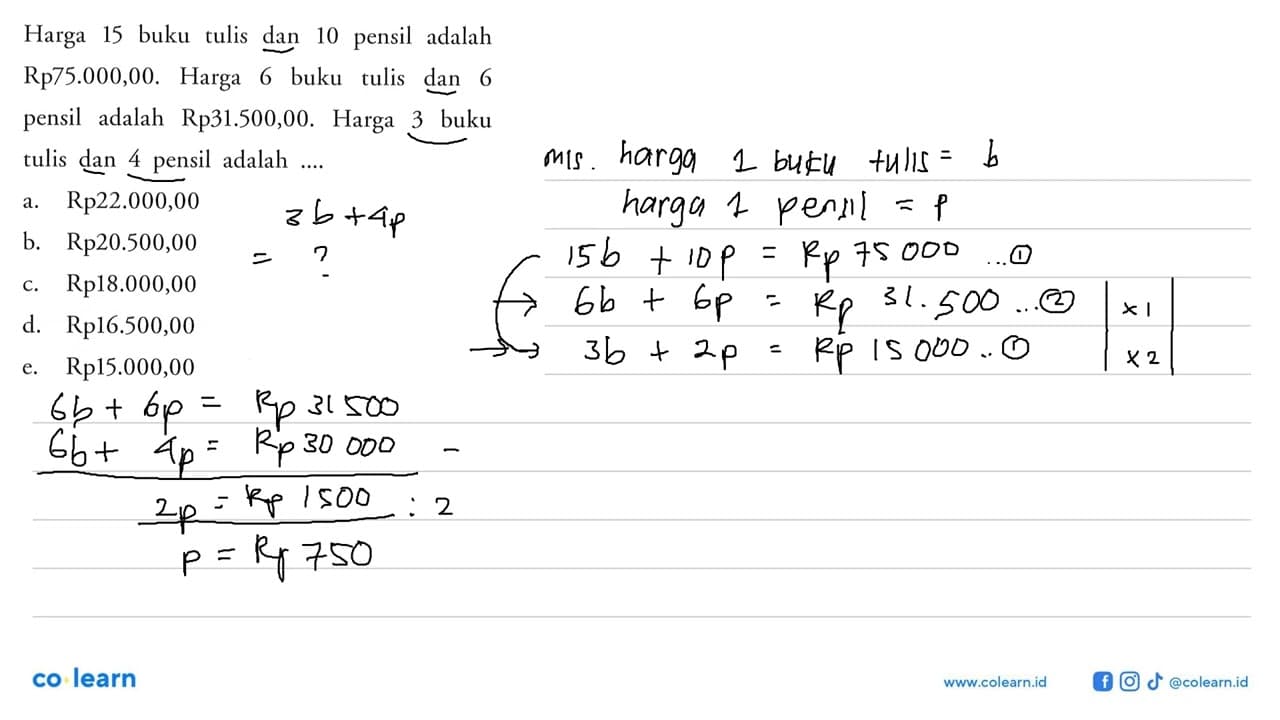 Harga 15 buku tulis dan 10 pensil adalah
Rp75.000,00. Harga 6 buku tulis dan 6
pensil adalah Rp31.500,00. Harga 3 buku
tulis dan 4 pensil adalah ....
a. Rp22.000,00
b. Rp20.500,00
c. Rp18.000,00
d. Rp16.500,00
e. Rp15.000,00
3b + 4p
= ?
mis. harga 1 buku tulis = b
harga 1 pensil = p
15b + 10p = Rp 75 000 ...①
6b + 6p = Rp 31.500 ...② | x 1 |
3b + 2p = Rp 15 000 .. ① | x 2 |
6b + 6p = Rp 31 500
6b + 4p = Rp 30 000 -
2p = Rp 1 500 : 2
p = Rp 750
co learn
www.colearn.id
@colearn.id